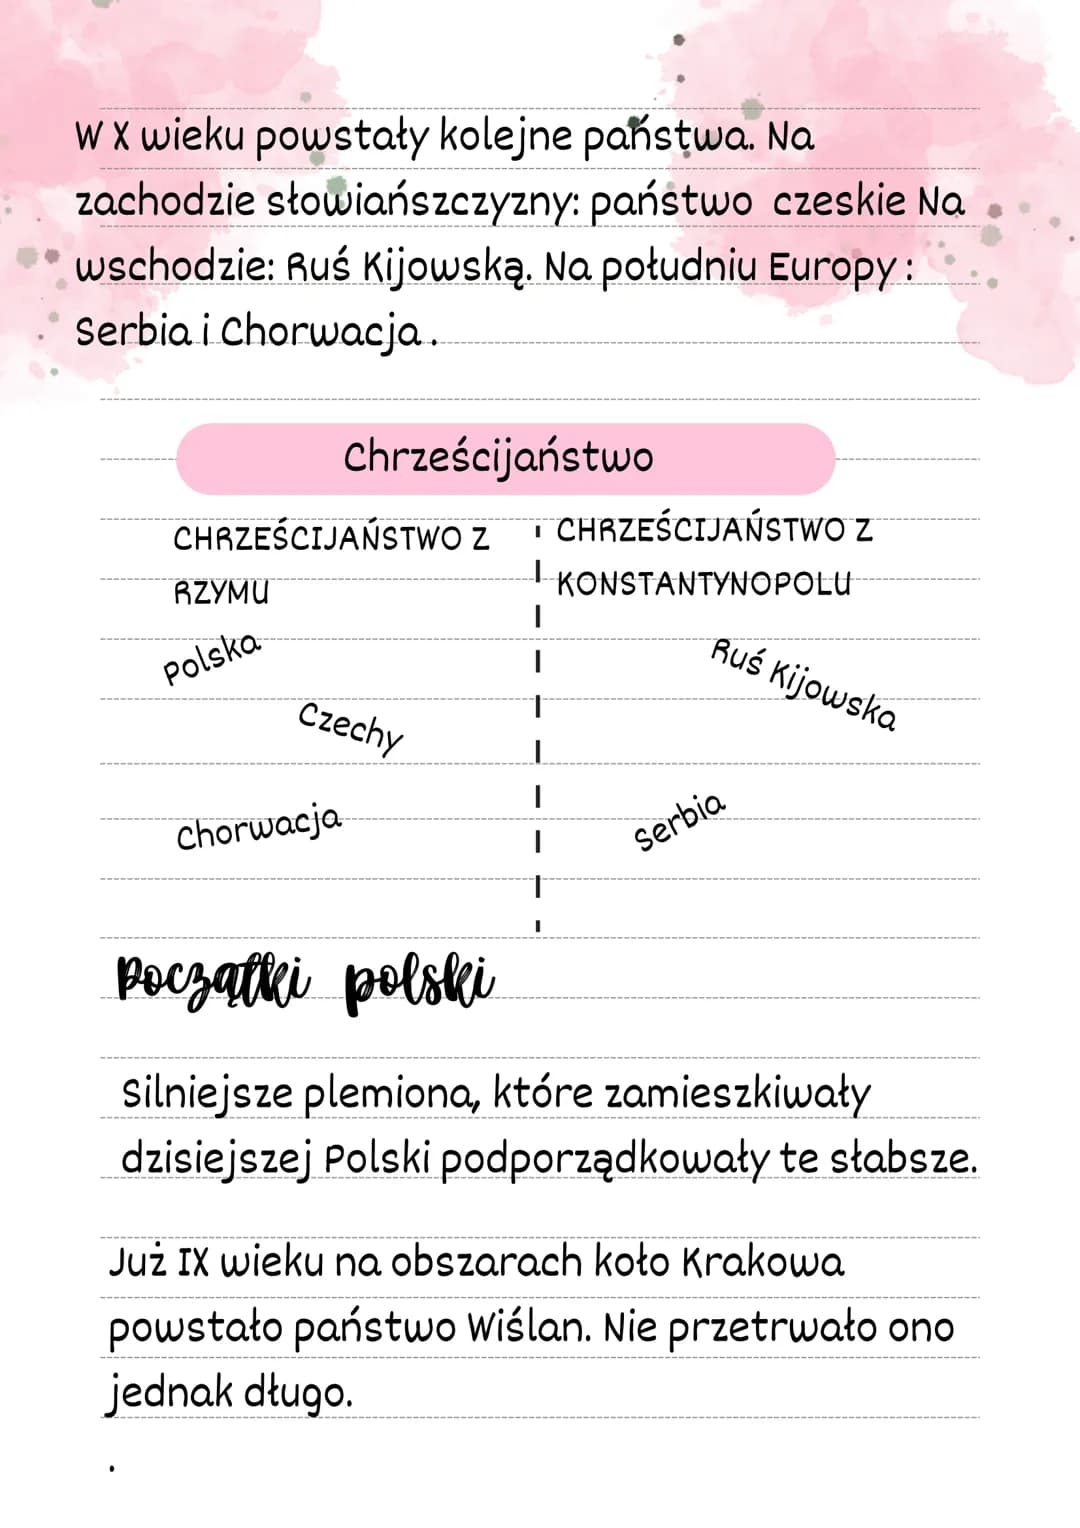 W X wieku powstały kolejne państwa. Na
zachodzie słowiańszczyzny: państwo czeskie Na
wschodzie: Ruś Kijowską. Na południu Europy :
Serbia i Chorwacja .
Chrześcijaństwo
CHRZEŚCIJAŃSTWO Z
RZYMU
Polska
Czechy
Chorwacja
CHRZEŚCIJAŃSTWO Z
KONSTANTYNOPOLU
Ruś Kijowska
Serbia
Początki polski
Silniejsze plemiona, które zamieszkiwały
dzisiejszej Polski podporządkowały te słabsze.
Już IX wieku na obszarach koło Krakowa
powstało państwo Wiślan. Nie przetrwało ono
jednak długo.
.